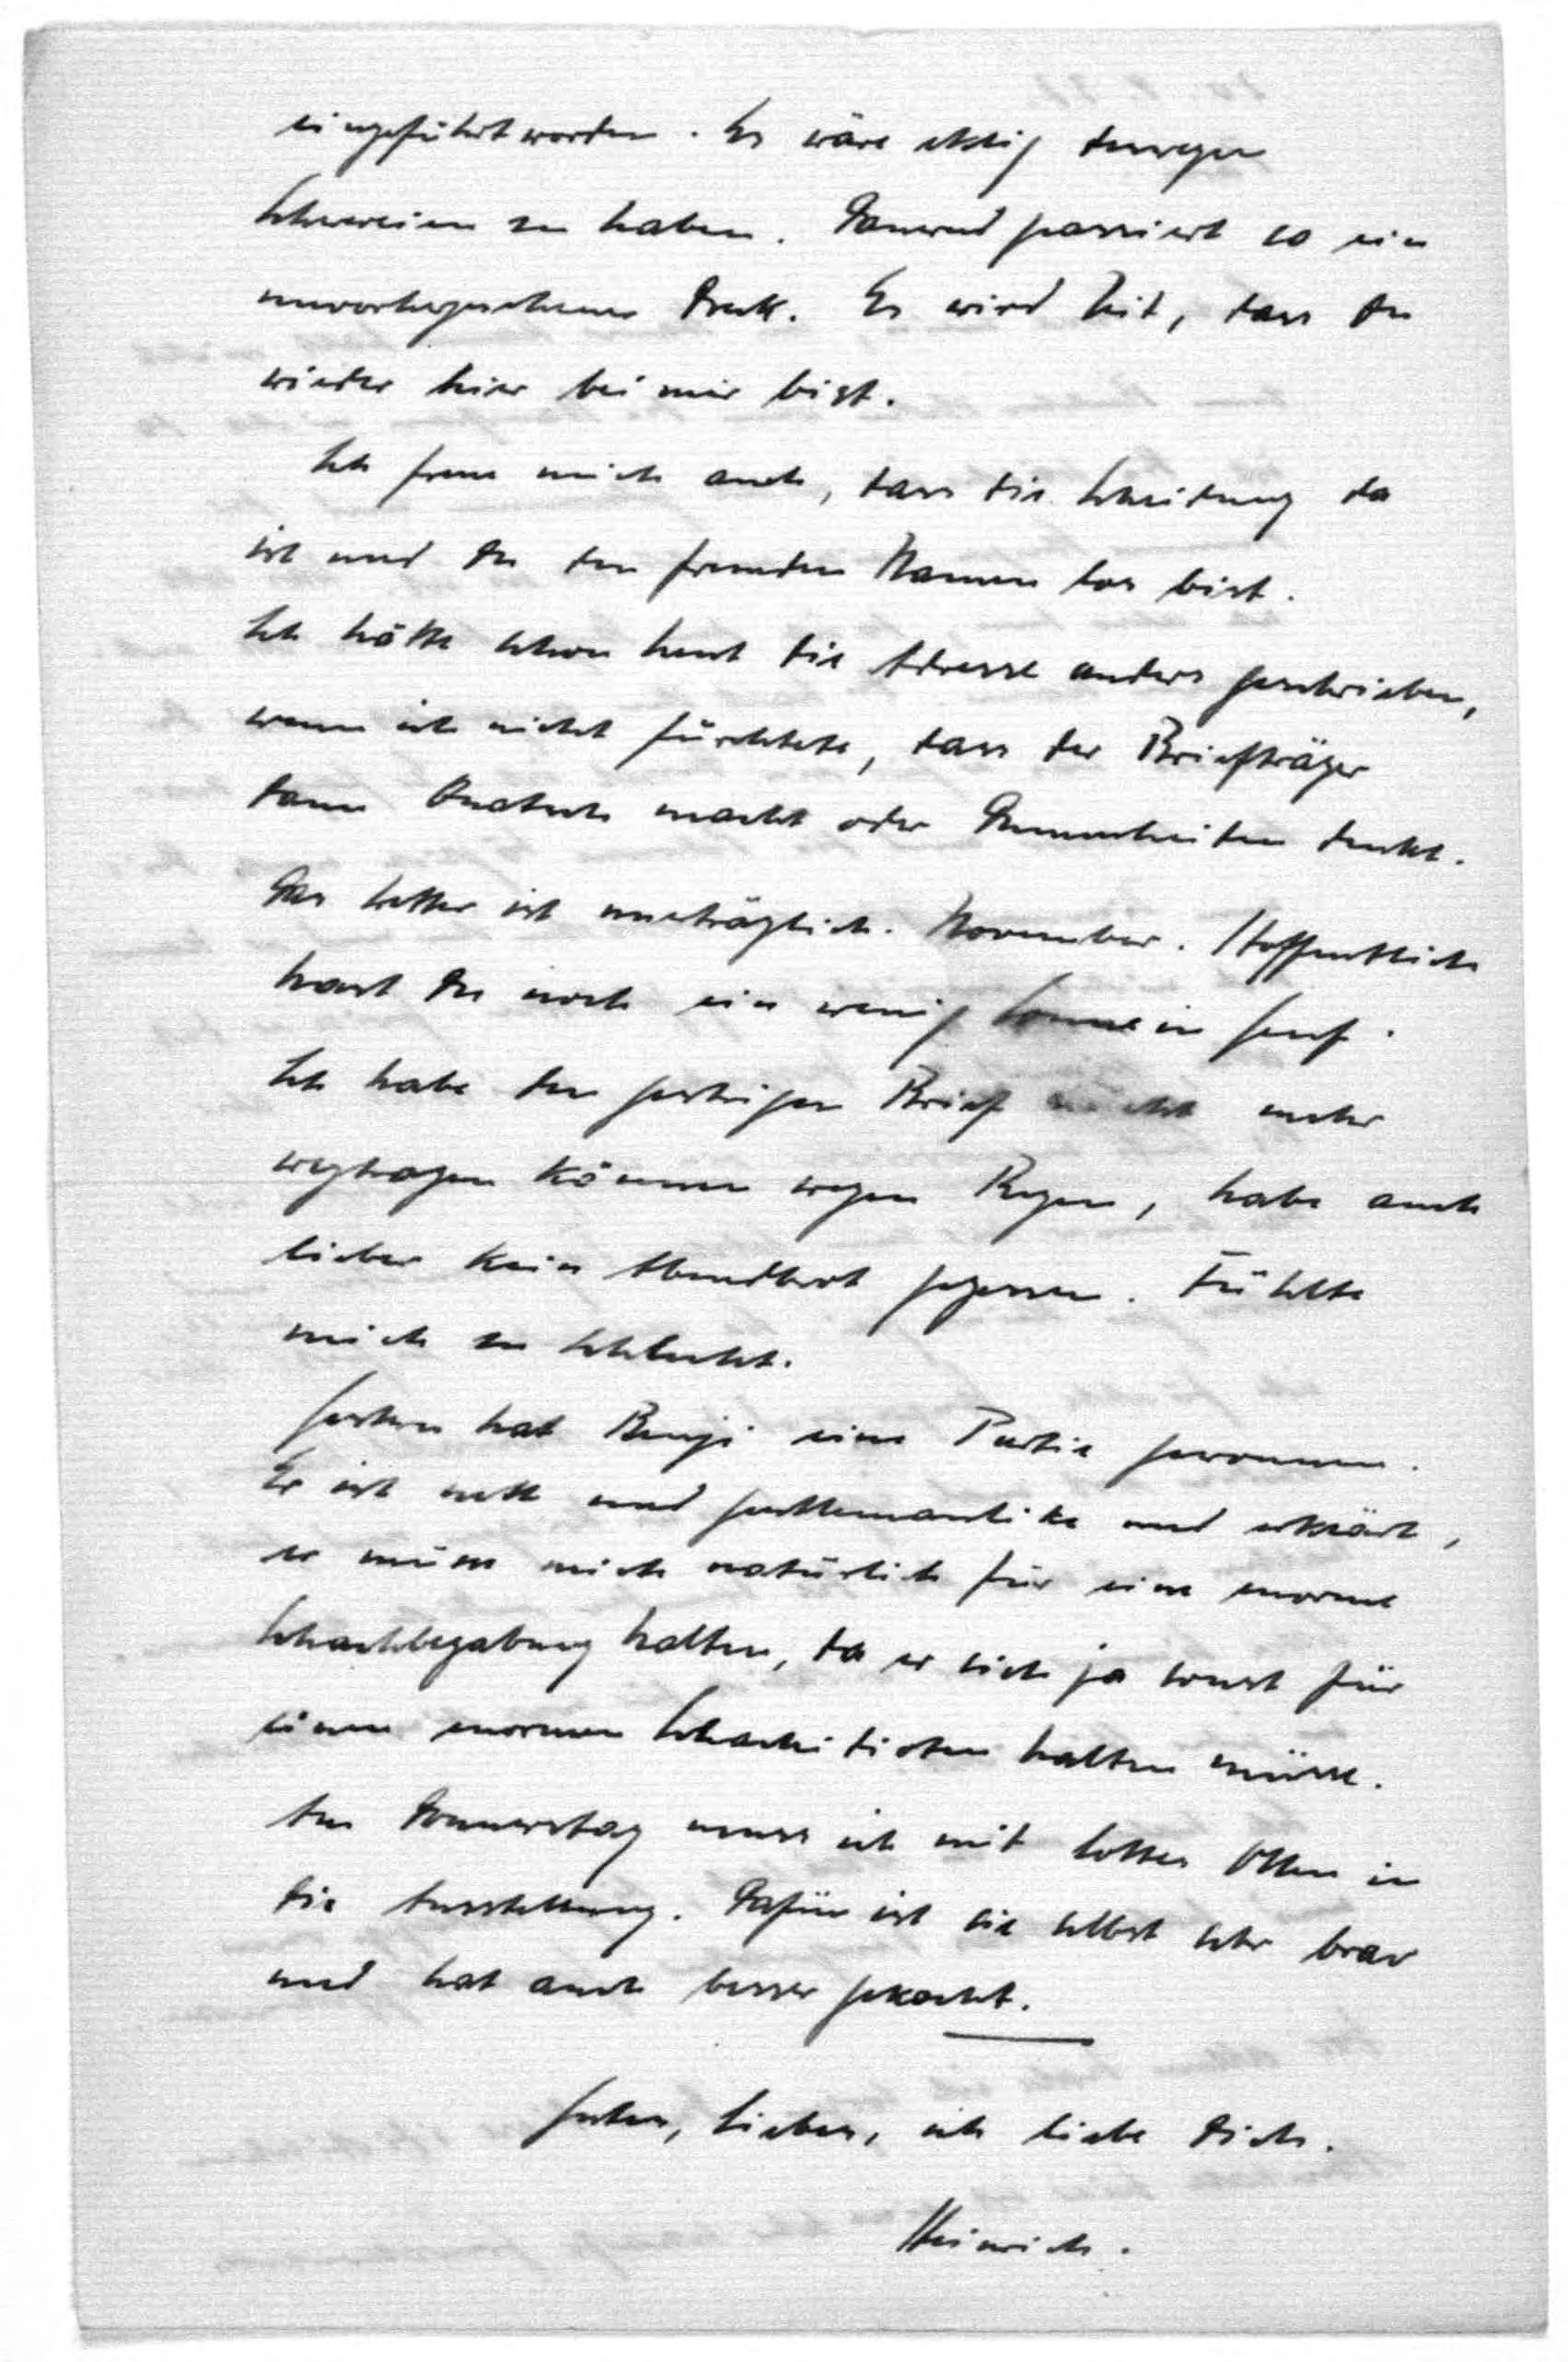 eingeführt worden. Es wäre eklig deswegen
Scherereien zu haben. Dauernd passiert so ein
unvorhergesehener Dreck. Es wird Zeit, dass Du
wieder hier bei mir bist.
Ich freue mich auch, dass die Scheidung da
ist und Du den fremden Namen los bist.
Ich hätte schon heut die Adresse anders geschrieben,
wenn ich nicht fürchtete, dass der Briefträger
dann Quatsch macht oder Dummheiten denkt.
Das Wetter ist unerträglich. November. Hoffentlich
hast Du noch ein wenig Sonne in Genf.
Ich habe den gestrigen Brief nicht mehr
wegtragen können wegen Regen, habe auch
lieber kein Abendbrot gegessen. Fühlte
mich zu schlecht.
Gestern hat Benji eine Partie gewonnen.
Er ist nett und und erklärt,
er müsse mich natürlich für eine enorme
Schachbegabung halten, da er sich ja sonst für
einen enormen Schachidioten halten müsse.
Am Donnerstag muss ich mit Lotte in
die Ausstellung. Dafür ist sie selbst sehr brav
und hat auch besser gekocht.
liebe Dich.
Heinrich.